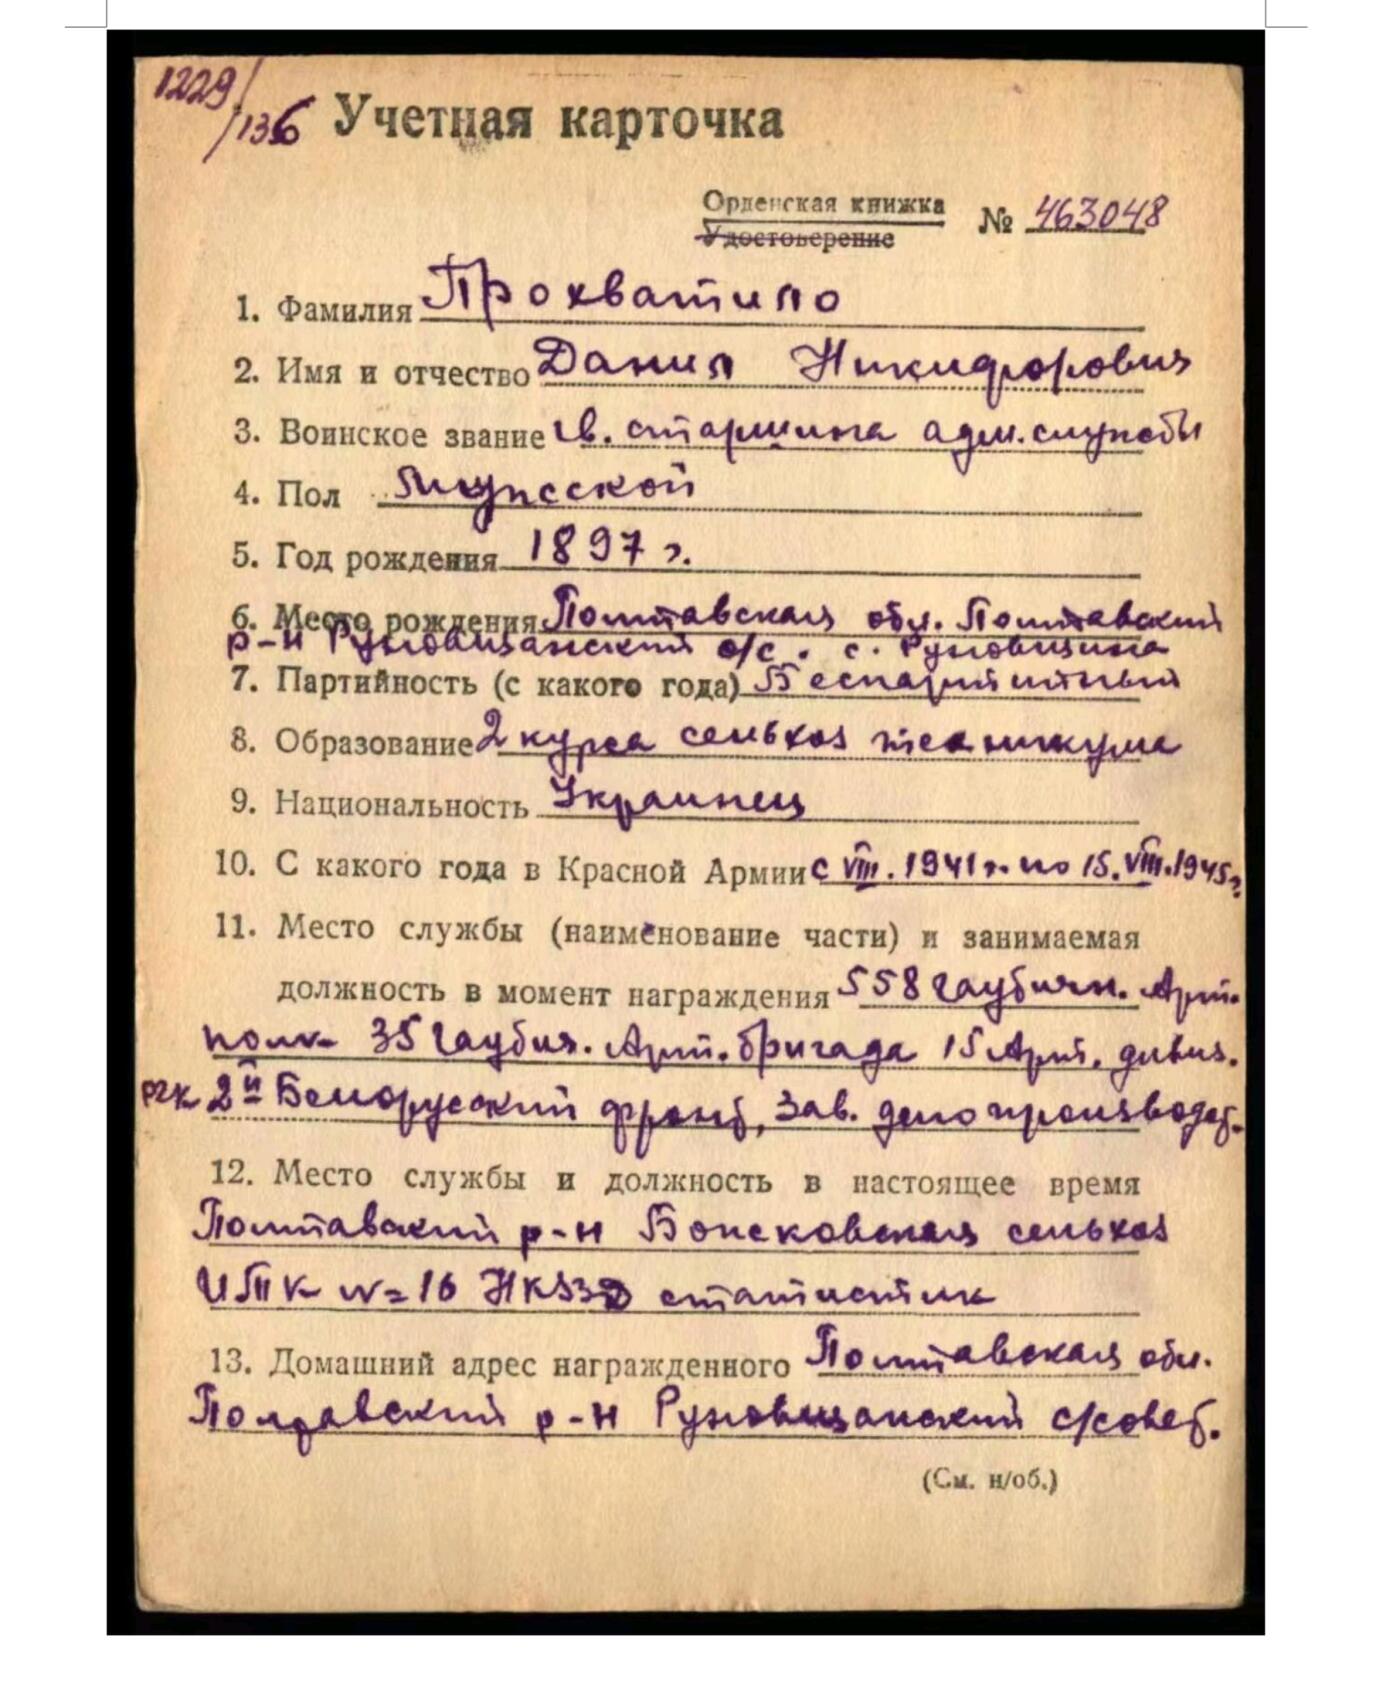 1229/136 Учетная карточка
Орденская книжка
Удостоверение № 463048
1. Фамилия Прохватило
2. Имя и отчество Данил Никифорович
3. Воинское звание гв. старшина адм. службы
4. Пол Мужской
5. Год рождения 1897 г.
6. Место рождения Полтавская обл. Полтавский
р-н Руновщанский с/с. с. Руновщина
7. Партийность (с какого года) Беспартийный
8. Образование 2 курса сельхоз техникума
9. Национальность Украинец
10. С какого года в Красной Армии с VIII. 1941 г. по 15. VIII. 1945 г.
11. Место службы (наименование части) и занимаемая
должность в момент награждения 558 гаубичн. Арт.
полк 35 гаубич. Арт. бригада 15 Арт. дивиз.
РГК 2й Белорусский фронт, Зав. делопроизводст.
12. Место службы и должность в настоящее время
Полтавский р-н сельхоз
ИТК №=16 статистик
13. Домашний адрес награжденного Полтавская обл.
Полтавский р-н Руновщанский с/совет.
(См. н/об.)